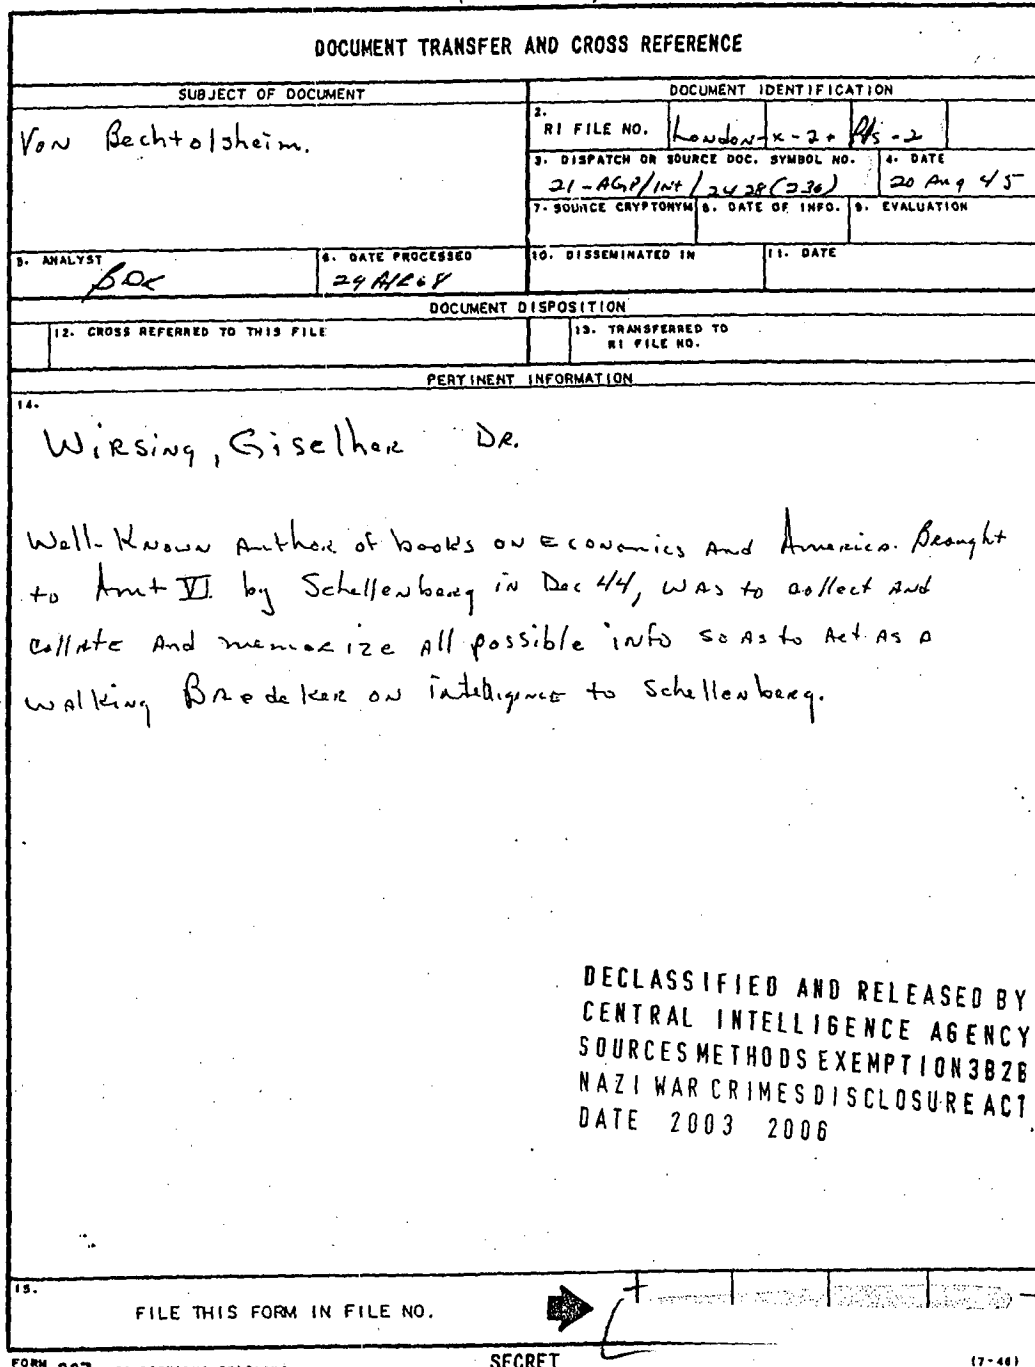 DOCUMENT TRANSFER AND CROSS REFERENCE
SUBJECT OF DOCUMENT
DOCUMENT IDENTIFICATION
Von Bechtolsheim.
2.
RI FILE NO. London-x-2 - Pts-2
3. DISPATCH OR SOURCE DOC. SYMBOL NO. 4. DATE
21-AGP/Int/2428(236) 20 Aug 45
7. SOURCE CRYPTONYM 8. DATE OF INFO. 9. EVALUATION
5. ANALYST 6. DATE PROCESSED 10. DISSEMINATED IN 11. DATE
DOCUMENT DISPOSITION
12. CROSS REFERRED TO THIS FILE
13. TRANSFERRED TO
RI FILE NO.
PERTINENT INFORMATION
14.
Wirsing, Giselher Dr.
Well-Known Author of books on Economics and America. Brought
to Amt VI by Schellenberg in Dec 44, was to collect and
collate and memorize all possible info so as to Act as a
walking Braedeker on Intelligence to Schellenberg.
DECLASSIFIED AND RELEASED BY
CENTRAL INTELLIGENCE AGENCY
SOURCES METHODS EXEMPTION 3B2B
NAZI WAR CRIMES DISCLOSURE ACT
DATE 2003 2006
15.
FILE THIS FORM IN FILE NO.
FORM SECRET (7-46)